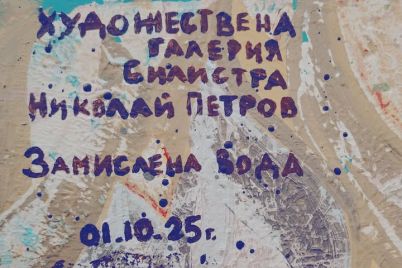 ХУДОЖЕСТВЕНА
ГАЛЕРИЯ
СИЛИСТРА
НИКОЛАЙ ПЕТРОВ
ЗАМИСЛЕНА ВОДА
01.10.25г.